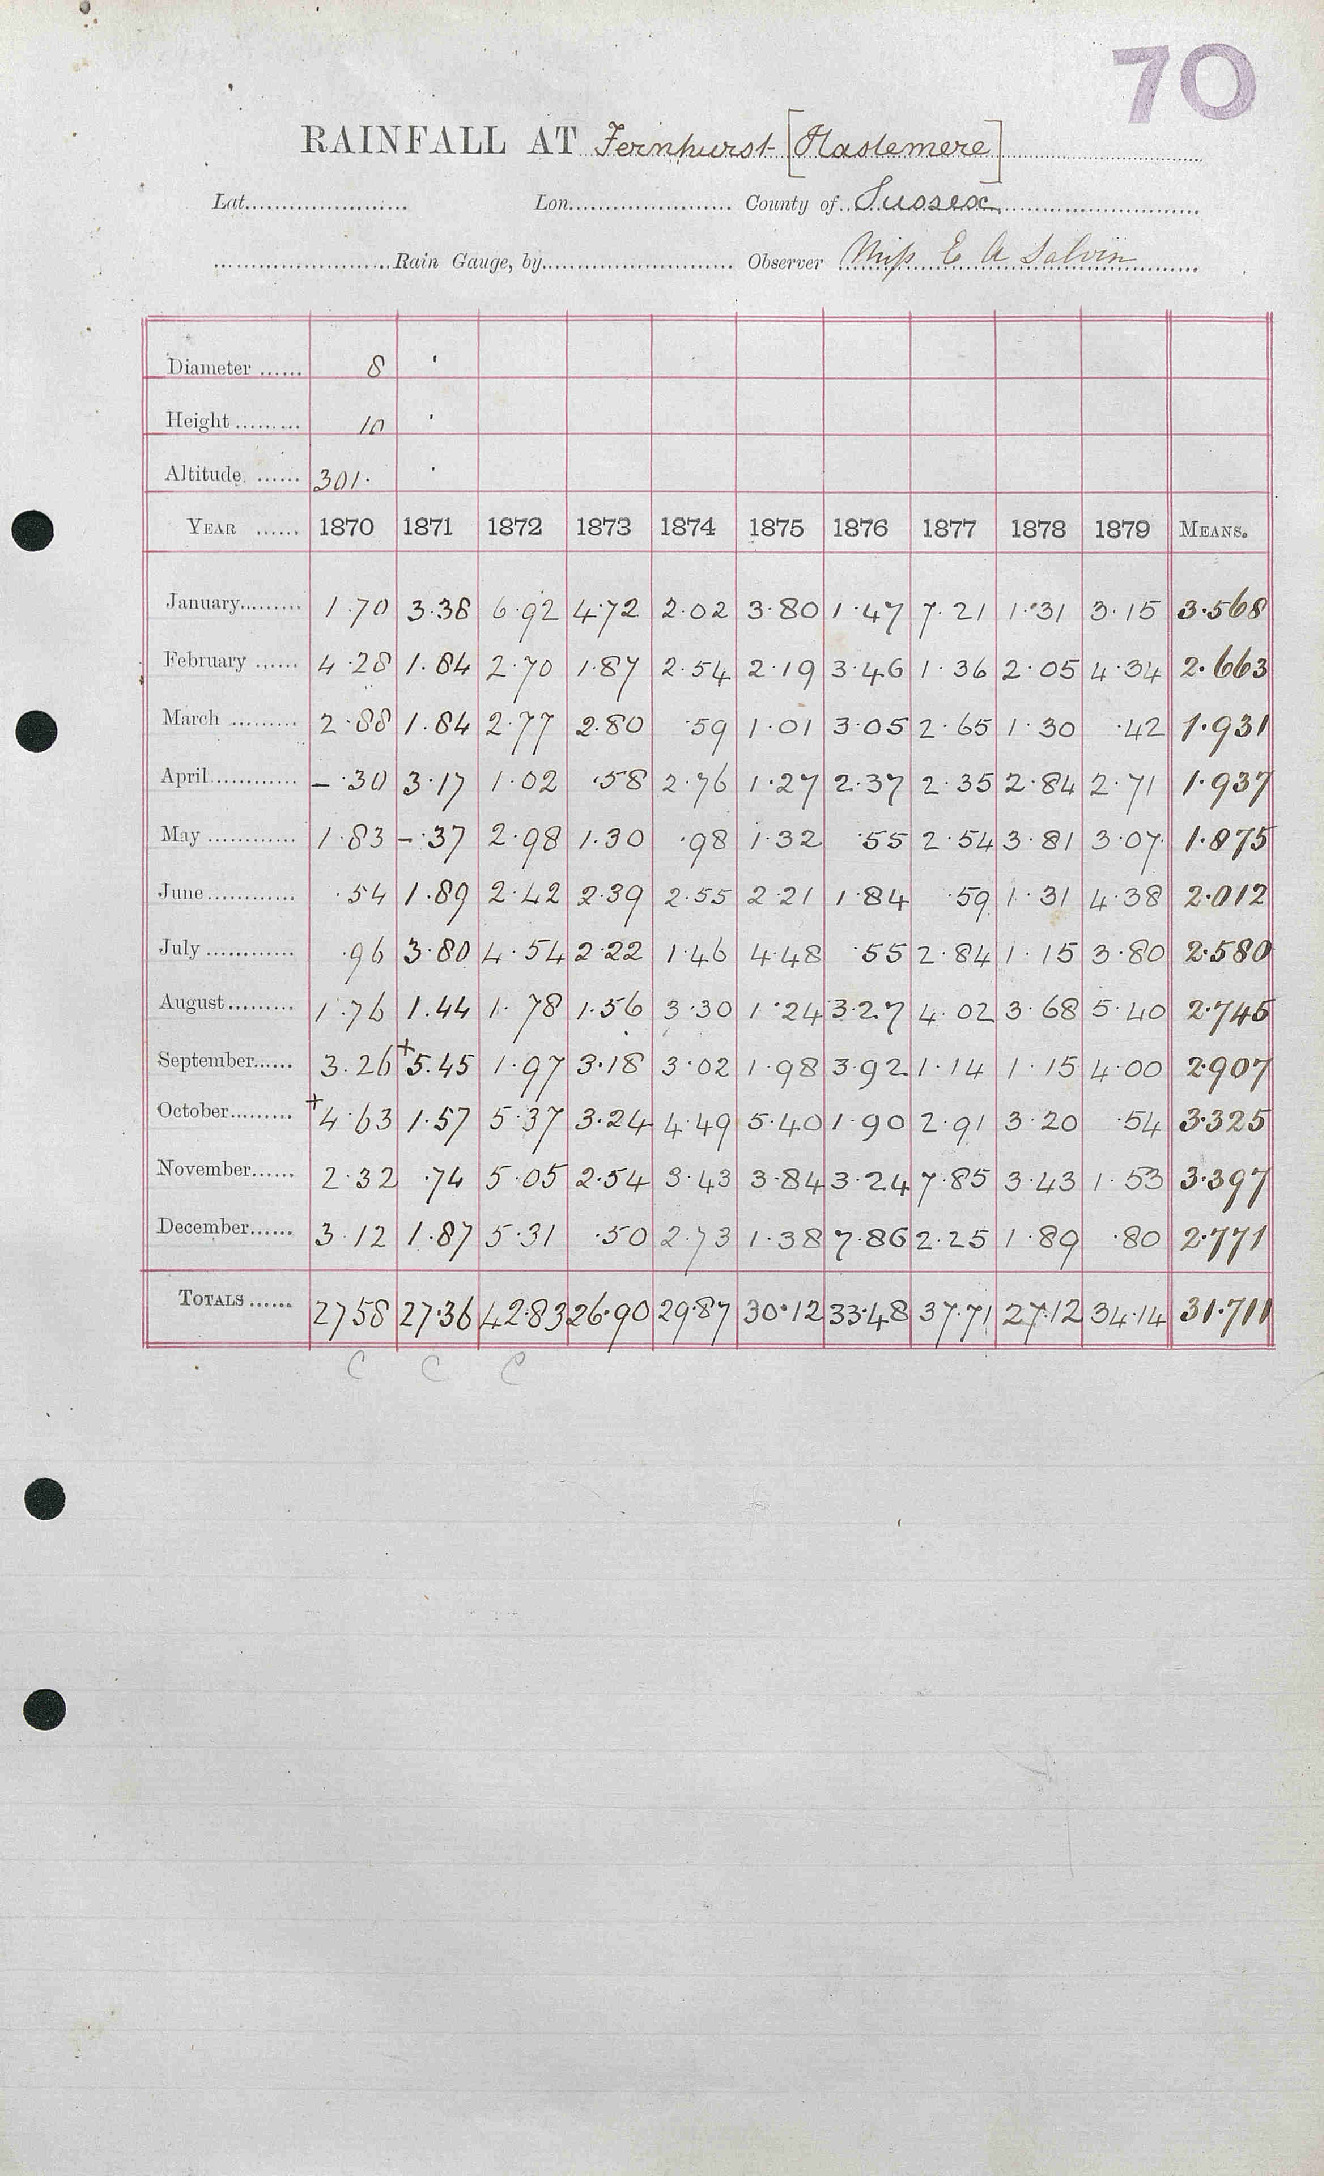 70
RAINFALL AT Fernhurst [Haslemere]
Lat. Lon. County of Sussex
Rain Gauge, by Observer Miss E A Salvin
Diameter 8 '
Height 10 '
Altitude 301. '
YEAR 1870 1871 1872 1873 1874 1875 1876 1877 1878 1879 MEANS.
January 1.70 3.38 6.92 4.72 2.02 3.80 1.47 7.21 1.31 3.15 3.568
February 4.28 1.84 2.70 1.87 2.54 2.19 3.46 1.36 2.05 4.34 2.663
March 2.88 1.84 2.77 2.80 .59 1.01 3.05 2.65 1.30 .42 1.931
April –.30 3.17 1.02 .58 2.76 1.27 2.37 2.35 2.84 2.71 1.937
May 1.83 –.37 2.98 1.30 .98 1.32 .55 2.54 3.81 3.07 1.875
June .54 1.89 2.42 2.39 2.55 2.21 1.84 .59 1.31 4.38 2.012
July .96 3.80 4.54 2.22 1.46 4.48 .55 2.84 1.15 3.80 2.580
August 1.76 1.44 1.78 1.56 3.30 1.24 3.27 4.02 3.68 5.40 2.745
September 3.26 +5.45 1.97 3.18 3.02 1.98 3.92 1.14 1.15 4.00 2.907
October +4.63 1.57 5.37 3.24 4.49 5.40 1.90 2.91 3.20 .54 3.325
November 2.32 .74 5.05 2.54 3.43 3.84 3.24 7.85 3.43 1.53 3.397
December 3.12 1.87 5.31 .50 2.73 1.38 7.86 2.25 1.89 .80 2.771
TOTALS 27.58 27.36 42.83 26.90 29.87 30.12 33.48 37.71 27.12 34.14 31.711
C C C